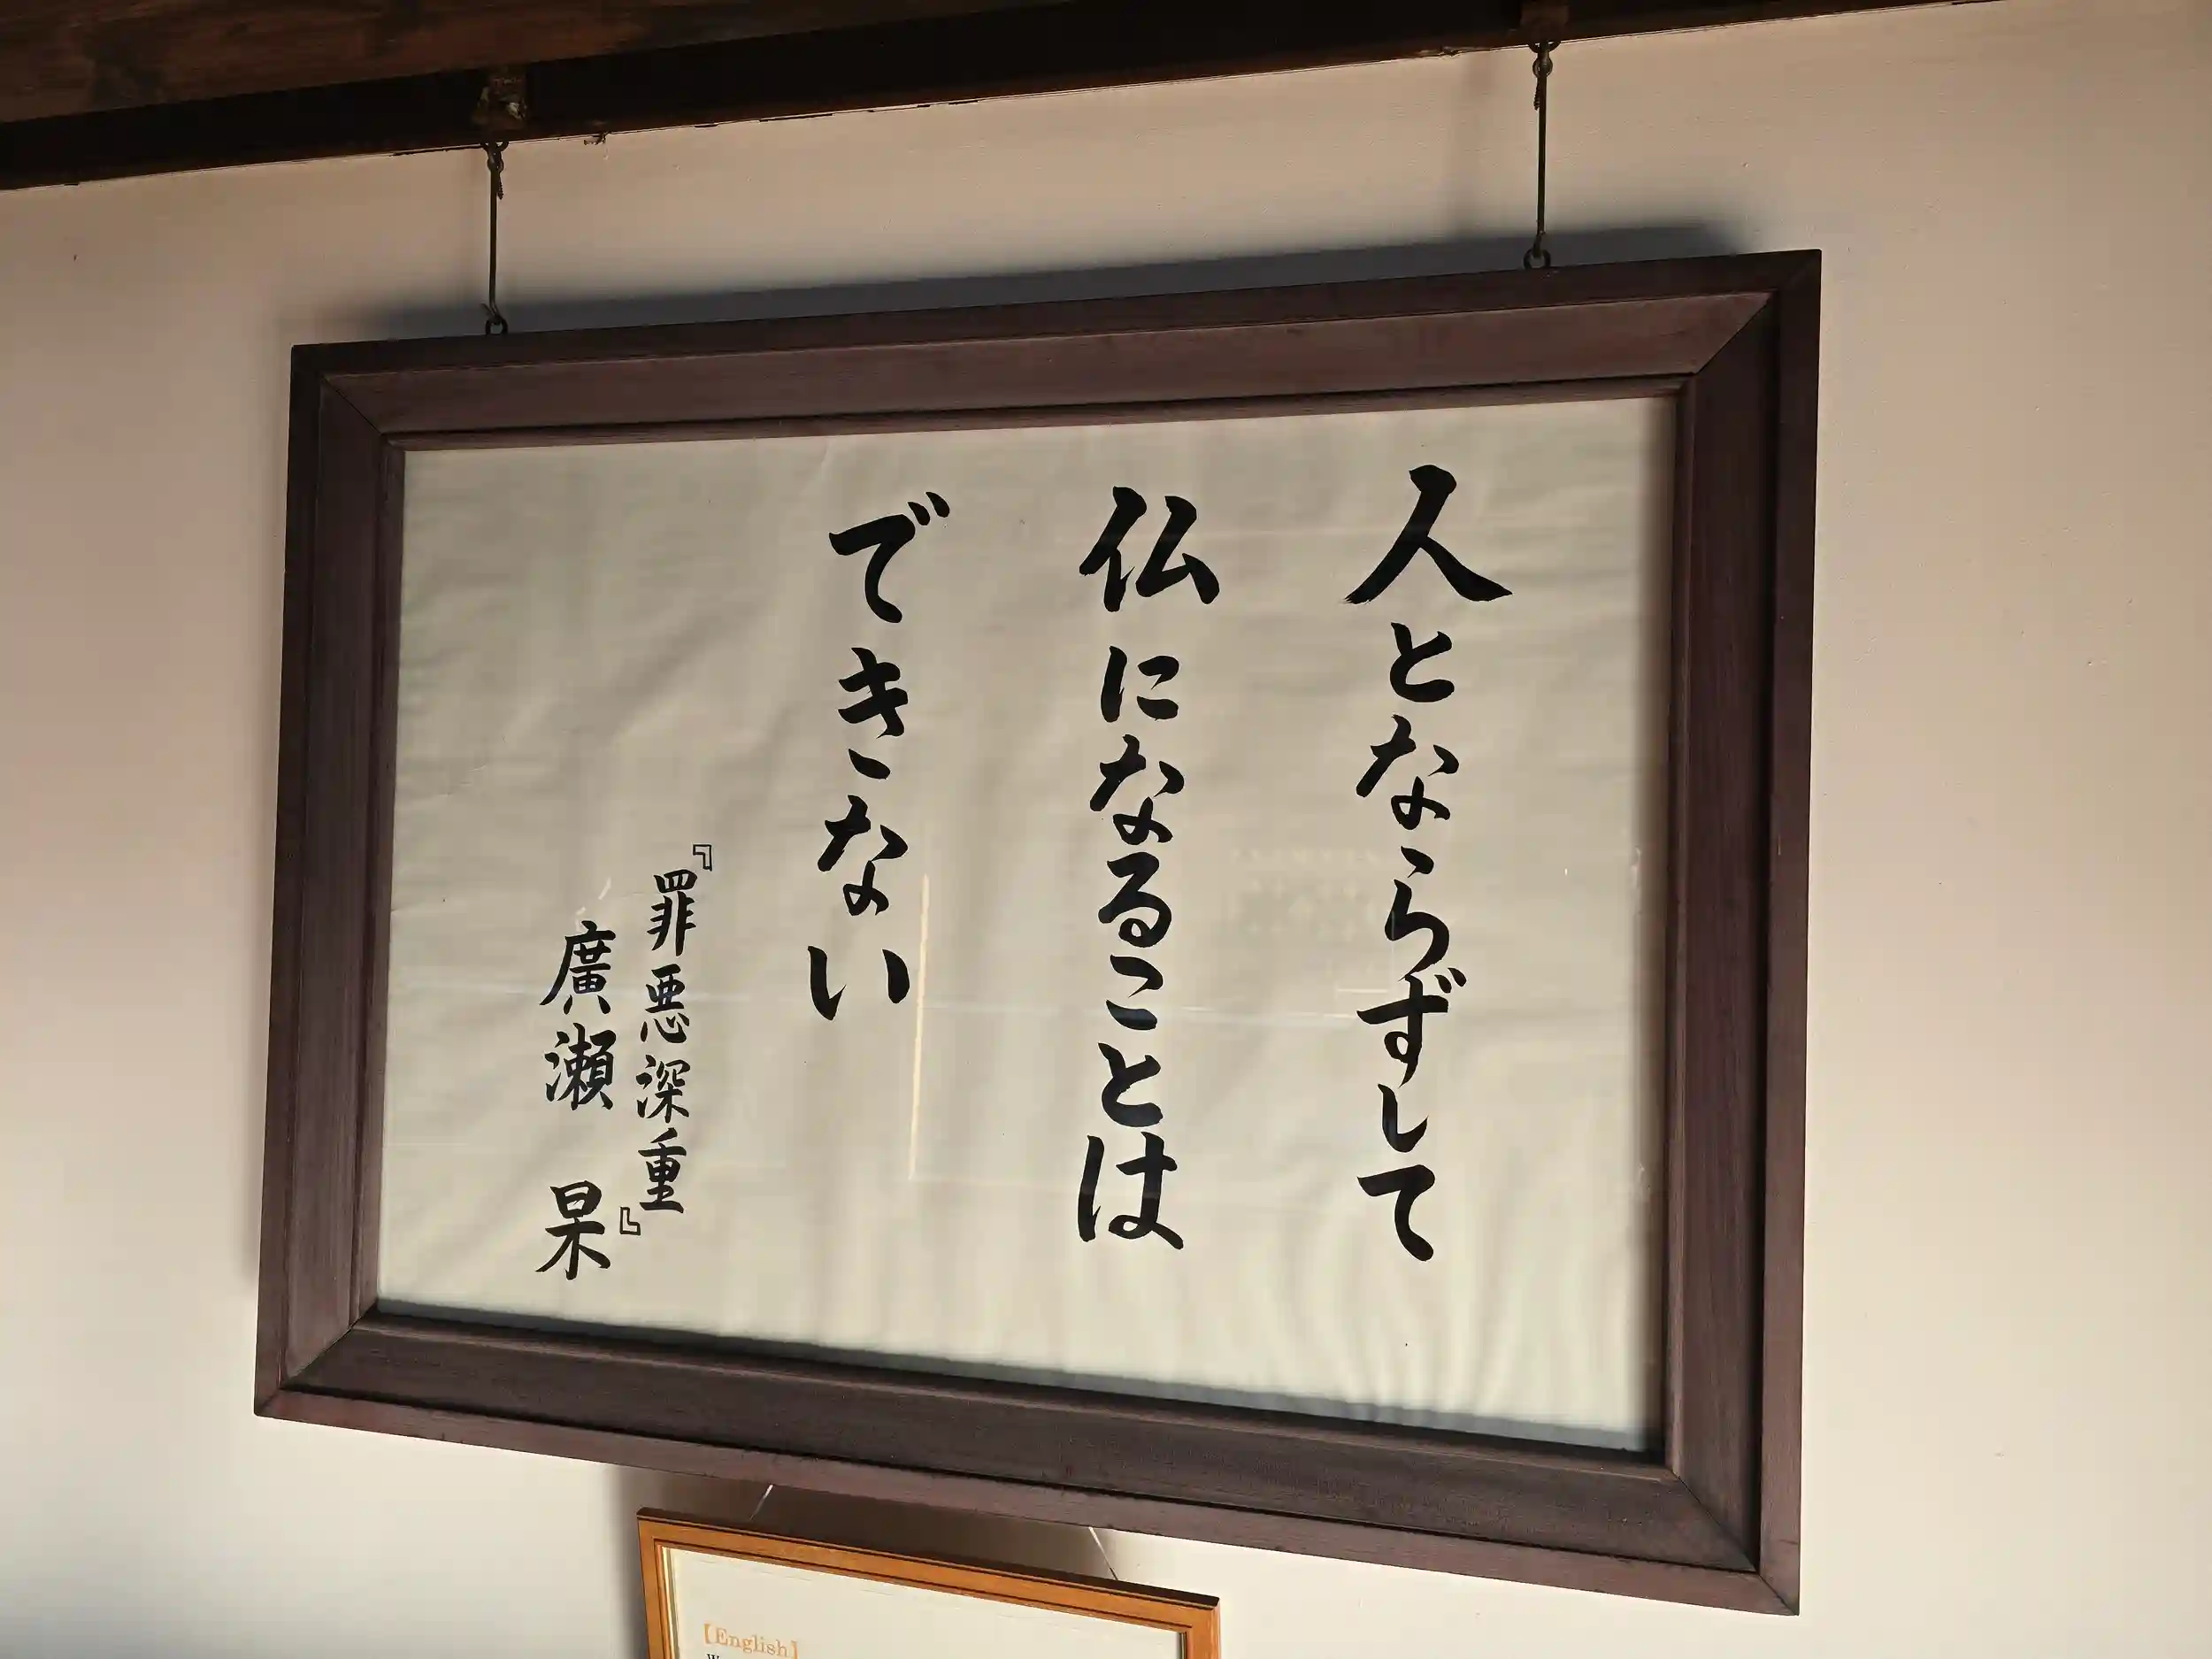 人とならずして
仏になることは
できない
『罪悪深重』
廣瀬 杲
【English】